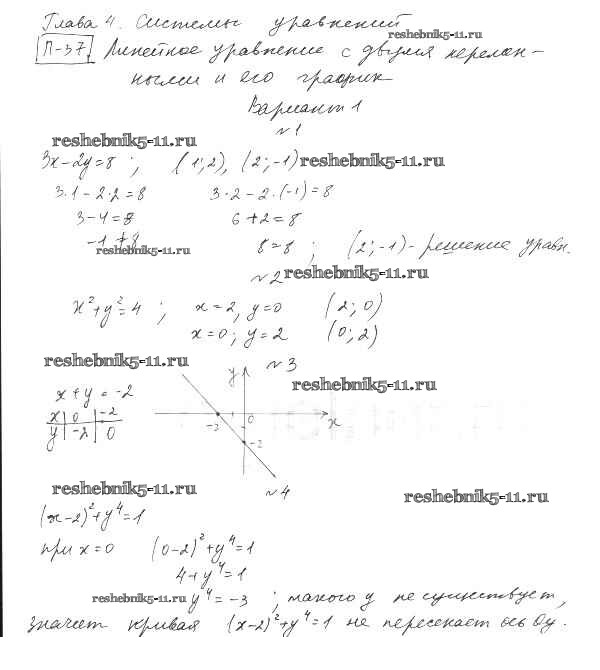 Глава 4. Системы уравнений
reshebnik5-11.ru
П-37. Линейное уравнение с двумя перемен-
ными и его график
Вариант 1
№1
reshebnik5-11.ru
3x-2y=8 ; (1;2), (2;-1) reshebnik5-11.ru
3·1-2·2=8 3·2-2·(-1)=8
3-4=8 6+2=8
-1≠8 8=8 ; (2;-1)- решение уравн.
reshebnik5-11.ru
№2 reshebnik5-11.ru
x²+y²=4 ; x=2, y=0 (2;0)
x=0; y=2 (0;2)
reshebnik5-11.ru №3
reshebnik5-11.ru
x+y=-2
x 0 -2
y -2 0
y
-2 0 x
-2
reshebnik5-11.ru №4
reshebnik5-11.ru
(x-2)²+y⁴=1
при x=0 (0-2)²+y⁴=1
4+y⁴=1
reshebnik5-11.ru y⁴=-3 ; такого y не существует,
значит кривая (x-2)²+y⁴=1 не пересекает ось Oy.